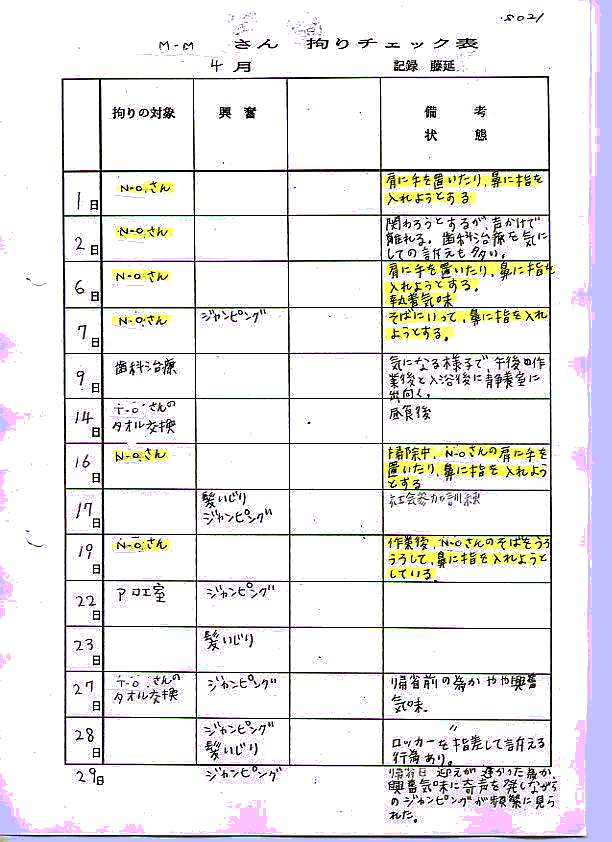 S021
M-M さん 拘りチェック表
4月 記録 藤延
拘りの対象 興奮 備考
状態
1日 N-O.さん 肩に手を置いたり、鼻に指を
入れようとする
2日 N-O.さん 関わろうとするが、声かけで
離れる。歯科治療を気に
しての訴えも多い。
6日 N-O.さん 肩に手を置いたり、鼻に指を
入れようとする。
執着気味
7日 N-O.さん ジャンピング そばにいって、鼻に指を入れ
ようとする。
9日 歯科治療 気になる様子で、午後の作
業後と入浴後に静養室に
出向く。
14日 T-O.さんの 昼食後
タオル交換
16日 N-O.さん 掃除中、N-Oさんの肩に手を
置いたり、鼻に指を入れよう
とする
17日 髪いじり 社会参加訓練
ジャンピング
19日 N-O.さん 作業後、N-Oさんのそばをうろ
うろして、鼻に指を入れようと
している。
22日 アロエ室 ジャンピング
23日 髪いじり
27日 T-O.さんの ジャンピング 帰省前の為かやや興奮
タオル交換 気味。
28日 ジャンピング 〃
髪いじり ロッカーを指差して訴える
行為あり。
29日 ジャンピング 帰省日 迎えが遅かった為か、
興奮気味に奇声を発しながら
のジャンピングが頻繁に見
られた。